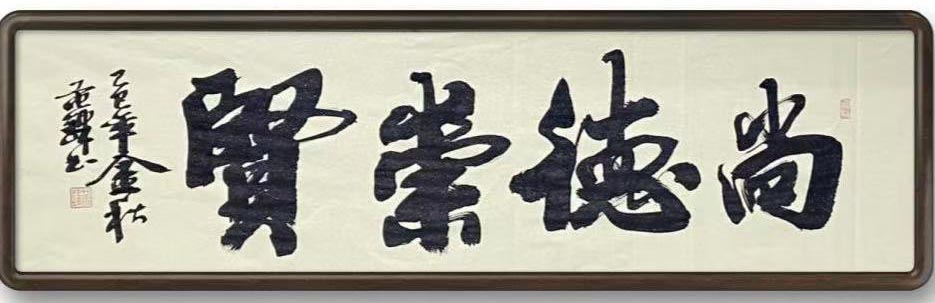 尚德崇賢
乙巳年金秋